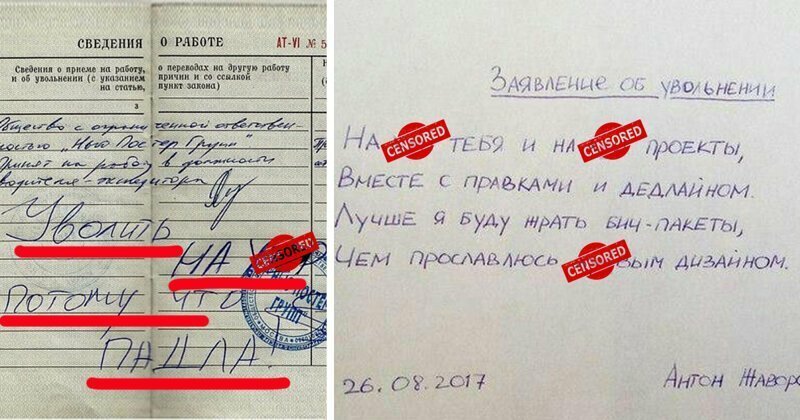 СВЕДЕНИЯ О РАБОТЕ АТ-VI № 5
Сведения о приеме на работу, о переводах на другую работу
и об увольнении (с указанием причин и со ссылкой
на статью, пункт закона)
3
Общество с ограниченной ответствен-
ностью „Нью Постер Групп"
Принят на работу в должности
водителя-экспедитора
Уволить
НА Х CENSORED
ПОТОМУ ЧТО
ПАДЛА!
ПОСТЕР
ГРУПП"
МОСКВА
Заявление об увольнении
На CENSORED тебя и на CENSORED проекты,
Вместе с правками и дедлайном.
Лучше я буду жрать бич-пакеты,
Чем прославлюсь CENSORED вым дизайном.
26.08.2017 Антон Жаворо